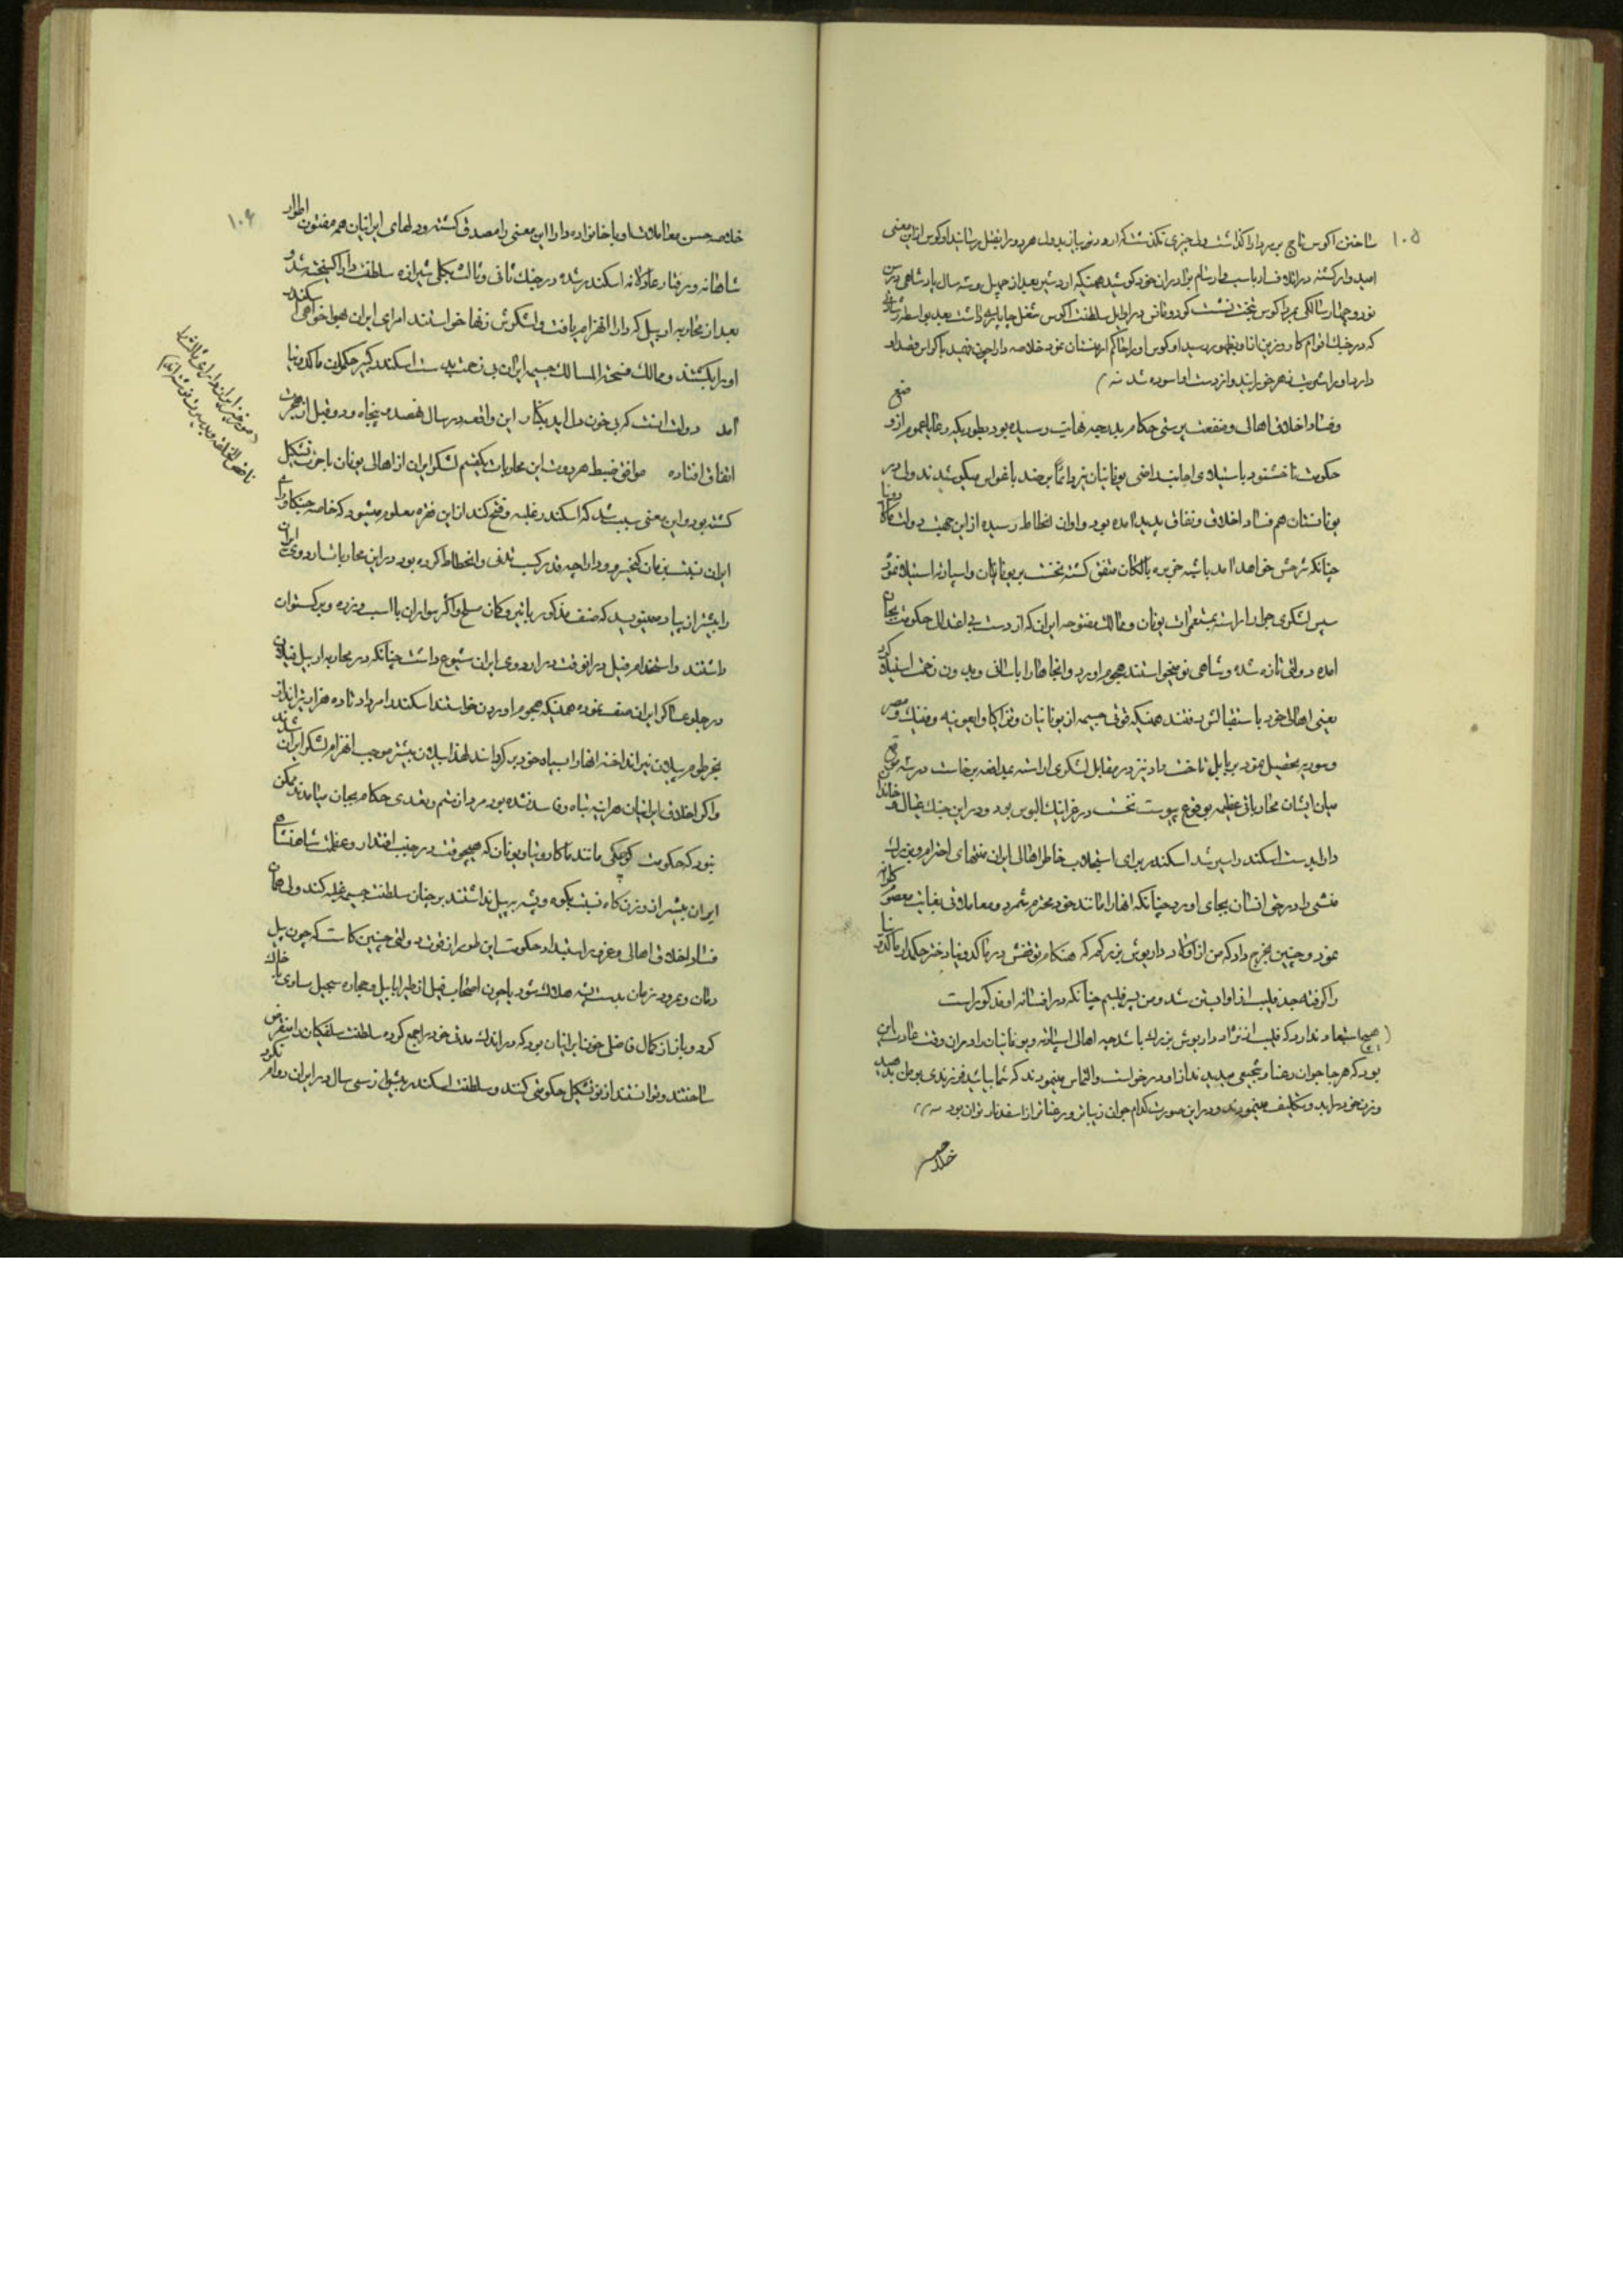 ۱۰۵
ساختن اکوس تاج بر سر دارا گذاشت ولی چیزی نگذشت که او در نوبه باز بدول هر دو را بقتل رسانید اوکوس از این معنی
امیدوار گشته در اتلاف ارباسپ و ارسام برادران خود کوشید همینکه اردشیر بعد از چهل و سه سال پادشاهی در سن
نود و چهار سالگی بمرد اکوس بتخت نشست
که در جنگ اقوام کادوزین از او بظهور رسید اوکوس او را حاکم ارمنستان نمود خلاصه دارا چون فهمید باکواس قصد او
دارد او را شربت زهر خورانید و از دست او آسوده شد
وفساد اخلاق اهالی و منفعت پرستی حکام بدرجه نهایت رسیده بود بطوریکه رعایا عموم از وضع
حکومت ناخشنود باستیلای اجانب راضی یونانیان نیز دائماً بر ضد باغوای میکوشیدند ولی در
یونانستان هم فساد اخلاق و نفاق پدید آمده بود و اوان انحطاط رسیده از این جهت دولت ماکادونیا
چنانکه شرحش خواهد آمد باسه جزیره بالکان متفق گشته نخست بر یونانیان و اسپارته استیلا نمود
سپس لشکری جرار آراسته بمستعمرات یونان و ممالک مفتوحه ایران که از دست بی اعتدالی حکومت بجان
آمده دولتی تازه شده و شاهی نو میخواستند هجوم آورد و آنجاها را باسانی و بدون زحمت استیلا کرد
یعنی اهالی خود باستقبالش رفتند همینکه قوتی جسیمه از یونانیان و تراکیا و ایونیه و فنیک و مصر
و سوریه تحصیل نمود بر بابل تاخت دارا نیز در مقابل لشکری آراسته بمدافعه برخاست در سه موقع
میان ایشان محارباتی عظیمه بوقوع پیوست نخست در غرانیک الیوس بود و در این جنک عیال و خاندان
دارا بدست اسکندر اسیر شد اسکندر برای استجلاب خاطر اهالی ایران منتهای احترام و بزرک
منشی را در حق آنان بجای آورد چنانکه آنها را مانند خود محترم شمرد و معاملاتی بغایت معصومانه
نمود و چنین بخرج داد که من از اولاد داریوش بزرکم که هنکام توقفش در ماکدونیا دختر حکمدار ماکدونیا
را گرفته جد فیلیپ از او آبستن شد و من پسر فیلیپم چنانکه در افسانه او مذکور است
(هیچ استبعاد ندارد که فیلیپ از نژاد داریوش بزرک باشد چه اهالی اسپارته و یونانیان را در آن وقت عادت این
بود که هر جا جوان رعنا و نجیبی میدیدند از او درخواست و التماس مینمودند که شما بیائید فرزندی بر من بدهید
و زن خود را بدو تکلیف مینمودند و در این صورت کدام جوان زیباتر و رعناتر از اسفندیار توان بود
خلاصه
۱۰۶
خلاصه حسن معاملات او با خانواده دارا این معنی را مصدق گشته دلهای ایرانیان هم مفتون اطوار
شاهانه و رفتار عادلانه اسکندر شده در جنک ثانی و ثالث بکلی شیرازه سلطنت دارا گسیخته شد و
بعد از محاربه اربیل که دارا انهزام یافت و لشکرش زنها خواستند امرای ایران بهواخواهی اسکندر
او را بکشتند و ممالک فسیحة المسالک جسیمه ایران بی زحمت بدست اسکندر کبیر حکمران ماکدونیا
آمد دولت آنست که بی خون دل آید بکنار این واقعه در سال نهصد و پنجاه و دو قبل از هجرت
اتفاق افتاده موافق ضبط هرودت این محاربات یکقسم لشکر ایران از اهالی یونان با جرت تشکیل
گشته بود و این معنی سبب شد که اسکندر غلبه و فتح کند از این فقره معلوم میشود که خاصه جنکاوران
ایران نسبت بزمان کیخسرو و دارا چه قدر کسب تدنی و انحطاط کرده بود در این محاربات اردوی ایران
را بیشتر از پیاده مینویسد که صنف مذکور با تیر و کمان مسلح و اکثر سواران با اسب و زره و برکستوان
داشتند و استخدام فیل در آنوقت در اردوی ایران شیوع داشت چنانکه در محاربه اربیل فیلان
در جلو عساکر ایران صف نموده همینکه هجوم آوردن خواستند اسکندر امر داد تا ده هزار تیرانداز
بخرطوم پیلان تیر انداخته آنها را بسپاه خود برگردانند لهذا پیلان بیشتر موجب انهزام لشکر ایران شدند
و اگر اخلاق ایرانیان بمرتبه تباه و فاسد نشده بود مردان ستم و تعدی حکام بجان نیامدند ممکن
نبود که حکومت کوچکی مانند ماکادونیا و یونان که هیچوقت در جنب اقتدار و عظمت شاهنشاهی
ایران بیش از وزن کاه نسبت بکوه و پشه به پیل نداشتند بر چنان سلطنت جسیمه غلبه کند ولی همان
فساد اخلاق اهالی و غرور استبداد حکومت این طور از قوت دولتی چنین کاست که چون پیل
دمان و نمرود زمان بدست پشه هلاک شود یا چون اصحاب فیل از طیر ابابیل و حجاره سجیل ساوی با خاک
کرد و باز از کمال فاضل خون ایرانیان بود که در اندک مدتی خود را جمع کرده سلطنت سلفکیان را منقرض
ساختند و توانستند از نو تشکیل حکومتی کنند و سلطنت اسکندر بیش از سی سال در ایران دوام نکرد